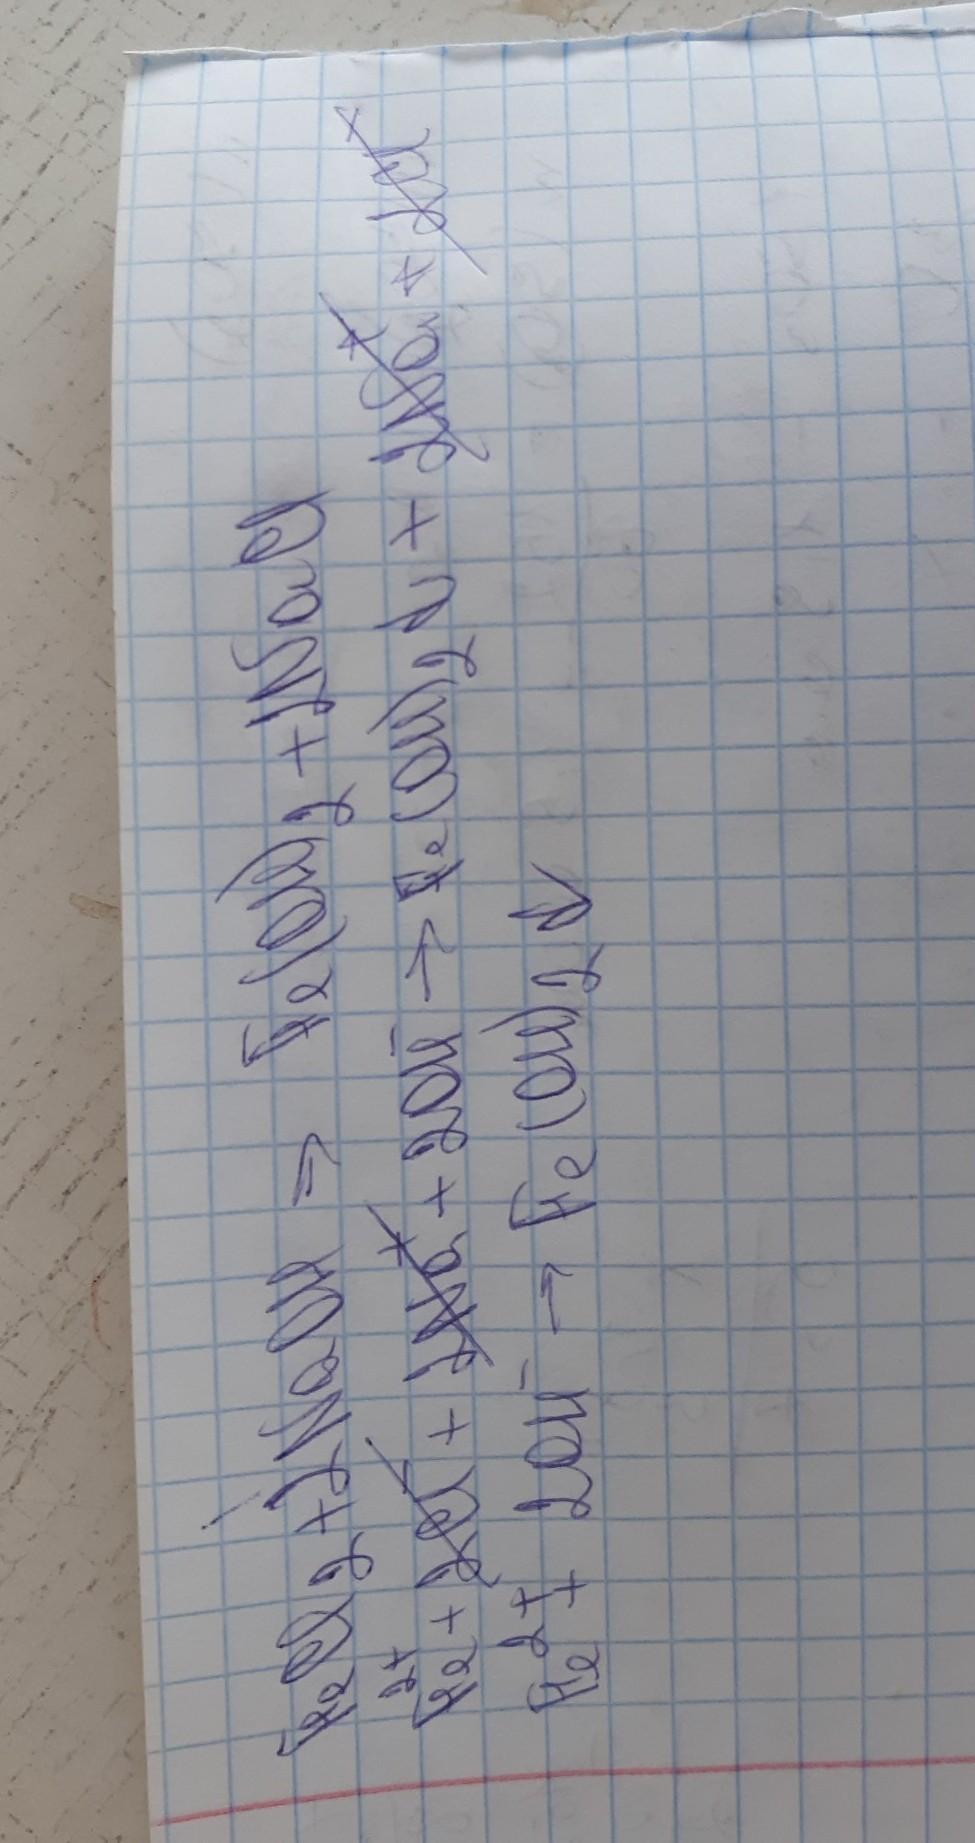 FeCl2 + 2NaOH → Fe(OH)2 + 2NaCl
Fe2+ + 2Cl- + 2Na+ + 2OH- → Fe(OH)2↓ + 2Na+ + 2Cl-
Fe2+ + 2OH- → Fe(OH)2↓